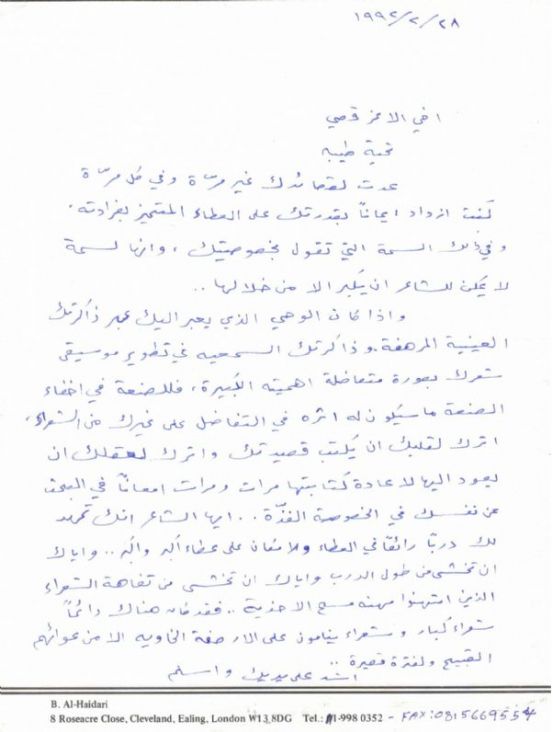 ١٩٩٢/٢/٢٨
اخي الاعز قصي
تحية طيبه
عدت لقصائدك غير مرّة وفي كل مرّة
كنت ازداد ايماناً بقدرتك على العطاء المتميز بفرادته.
وفي ذلك السمة التي تقول بخصوصيتك، وانها لسمة
لا يمكن للشاعر ان يكبر الا من خلالها ..
واذا كان الوحي الذي يعبر اليك عبر ذاكرتك
العينية المرهفة وذاكرتك السمعيه في تطوير موسيقى
شعرك بصورة متفاضلة اهميته الكبيرة، فللصنعة في اخفاء
الصنعة ما سيكون له اثره في التفاضل على غيرك من الشعراء،
اترك لقلبك ان يكتب قصيدتك واترك لعقلك ان
يعود اليها لاعادة كتابتها مرات ومرات امعاناً في البحث
عن نفسك في الخصوصية الفذّة .. ايها الشاعر انك تمهد
لك درباً رائقاً في العطاء على عطاء أكبر وأكبر .. واياك
ان تخشى من طول الدرب واياك ان تخشى من تفاهة الشعراء
الذين امتهنوا مهنه مسح الاحذية .. فقد كان هناك دائماً
شعراء كبار وشعراء ينامون على الارصفة الخاويه الا من عوائهم
القبيح ولفترة قصيرة ..
اشد على يديك واسلم
B. Al-Haidari
8 Roseacre Close, Cleveland, Ealing, London W13 8DG Tel.: 01-998 0352 - FAX: 0815669554